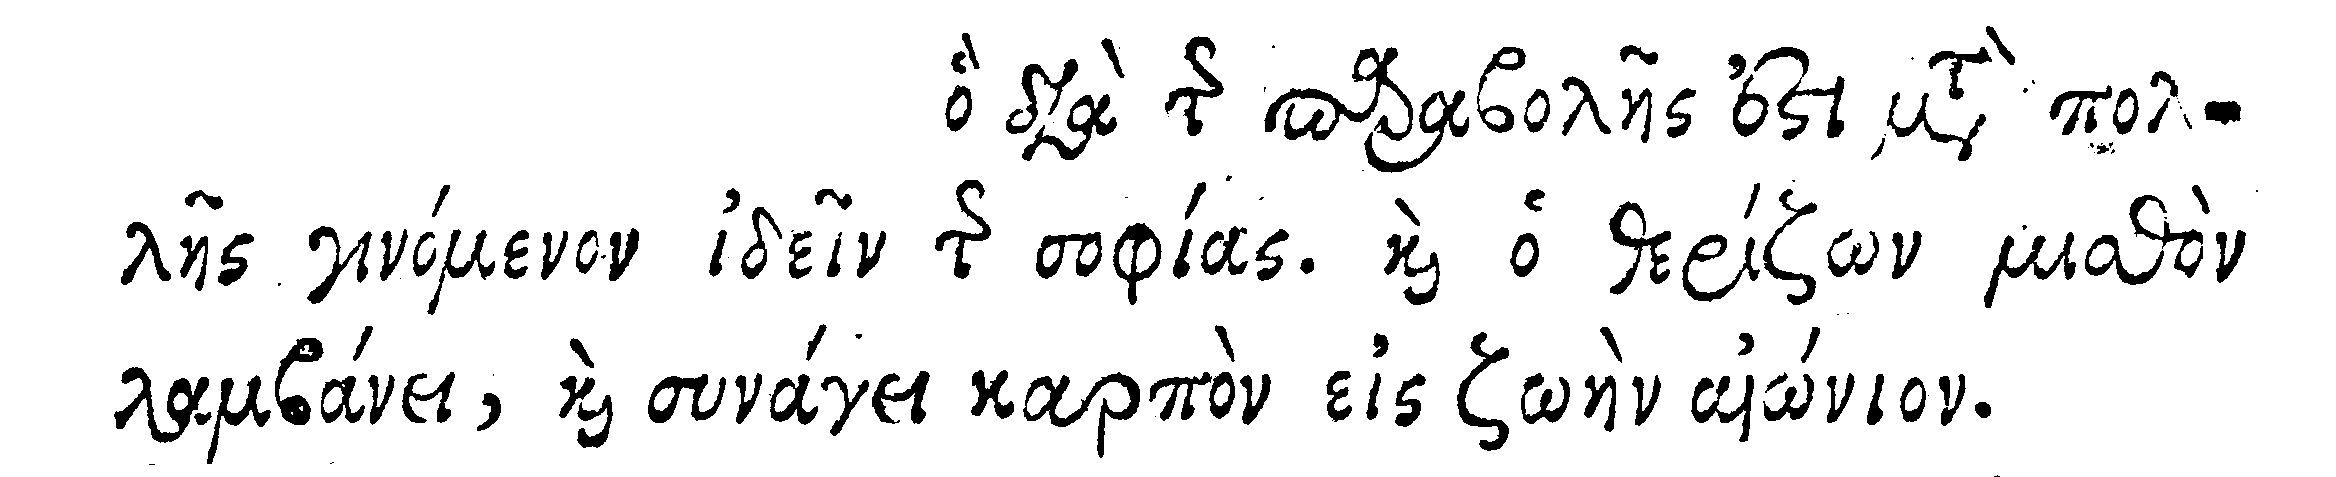 ὃ διὰ τῆς παραβολῆς ἔστι μετὰ πολ-
λῆς γινόμενον ἰδεῖν τῆς σοφίας. καὶ ὁ θερίζων μισθὸν
λαμβάνει, καὶ συνάγει καρπὸν εἰς ζωὴν αἰώνιον.